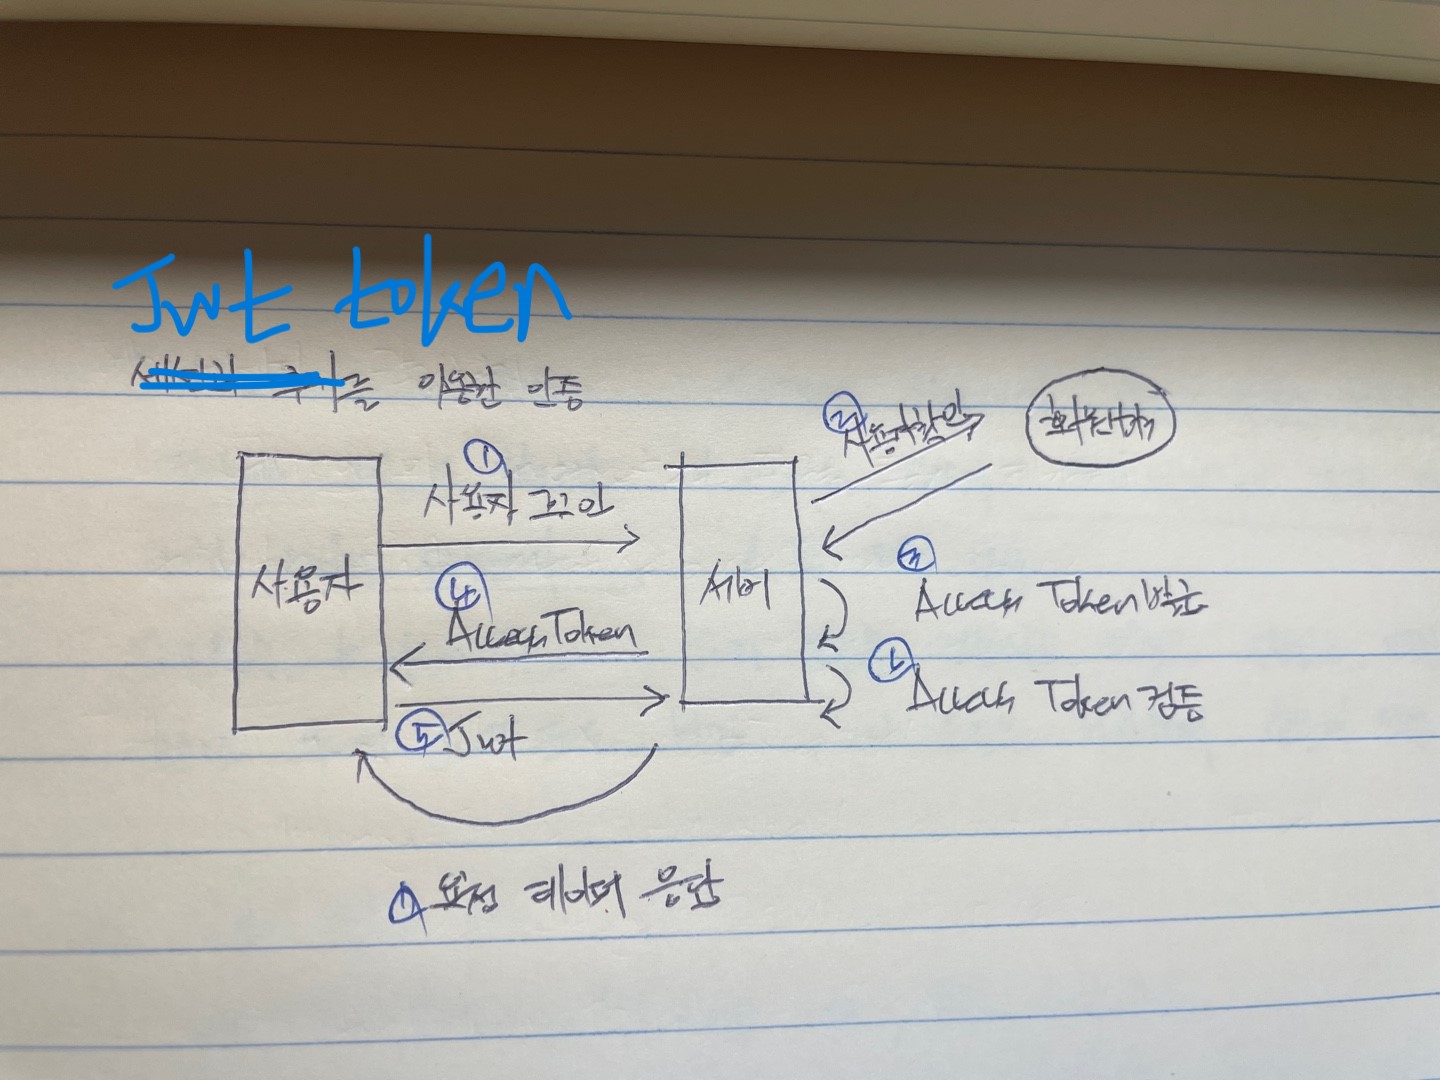 Jwt token
를 이용한 인증
① 사용자 로그인
② 사용자 확인
회원DB
사용자
서버
③
Access Token 발급
④
Access Token
Access Token 검증
⑤ Jwt
요청 데이터 응답